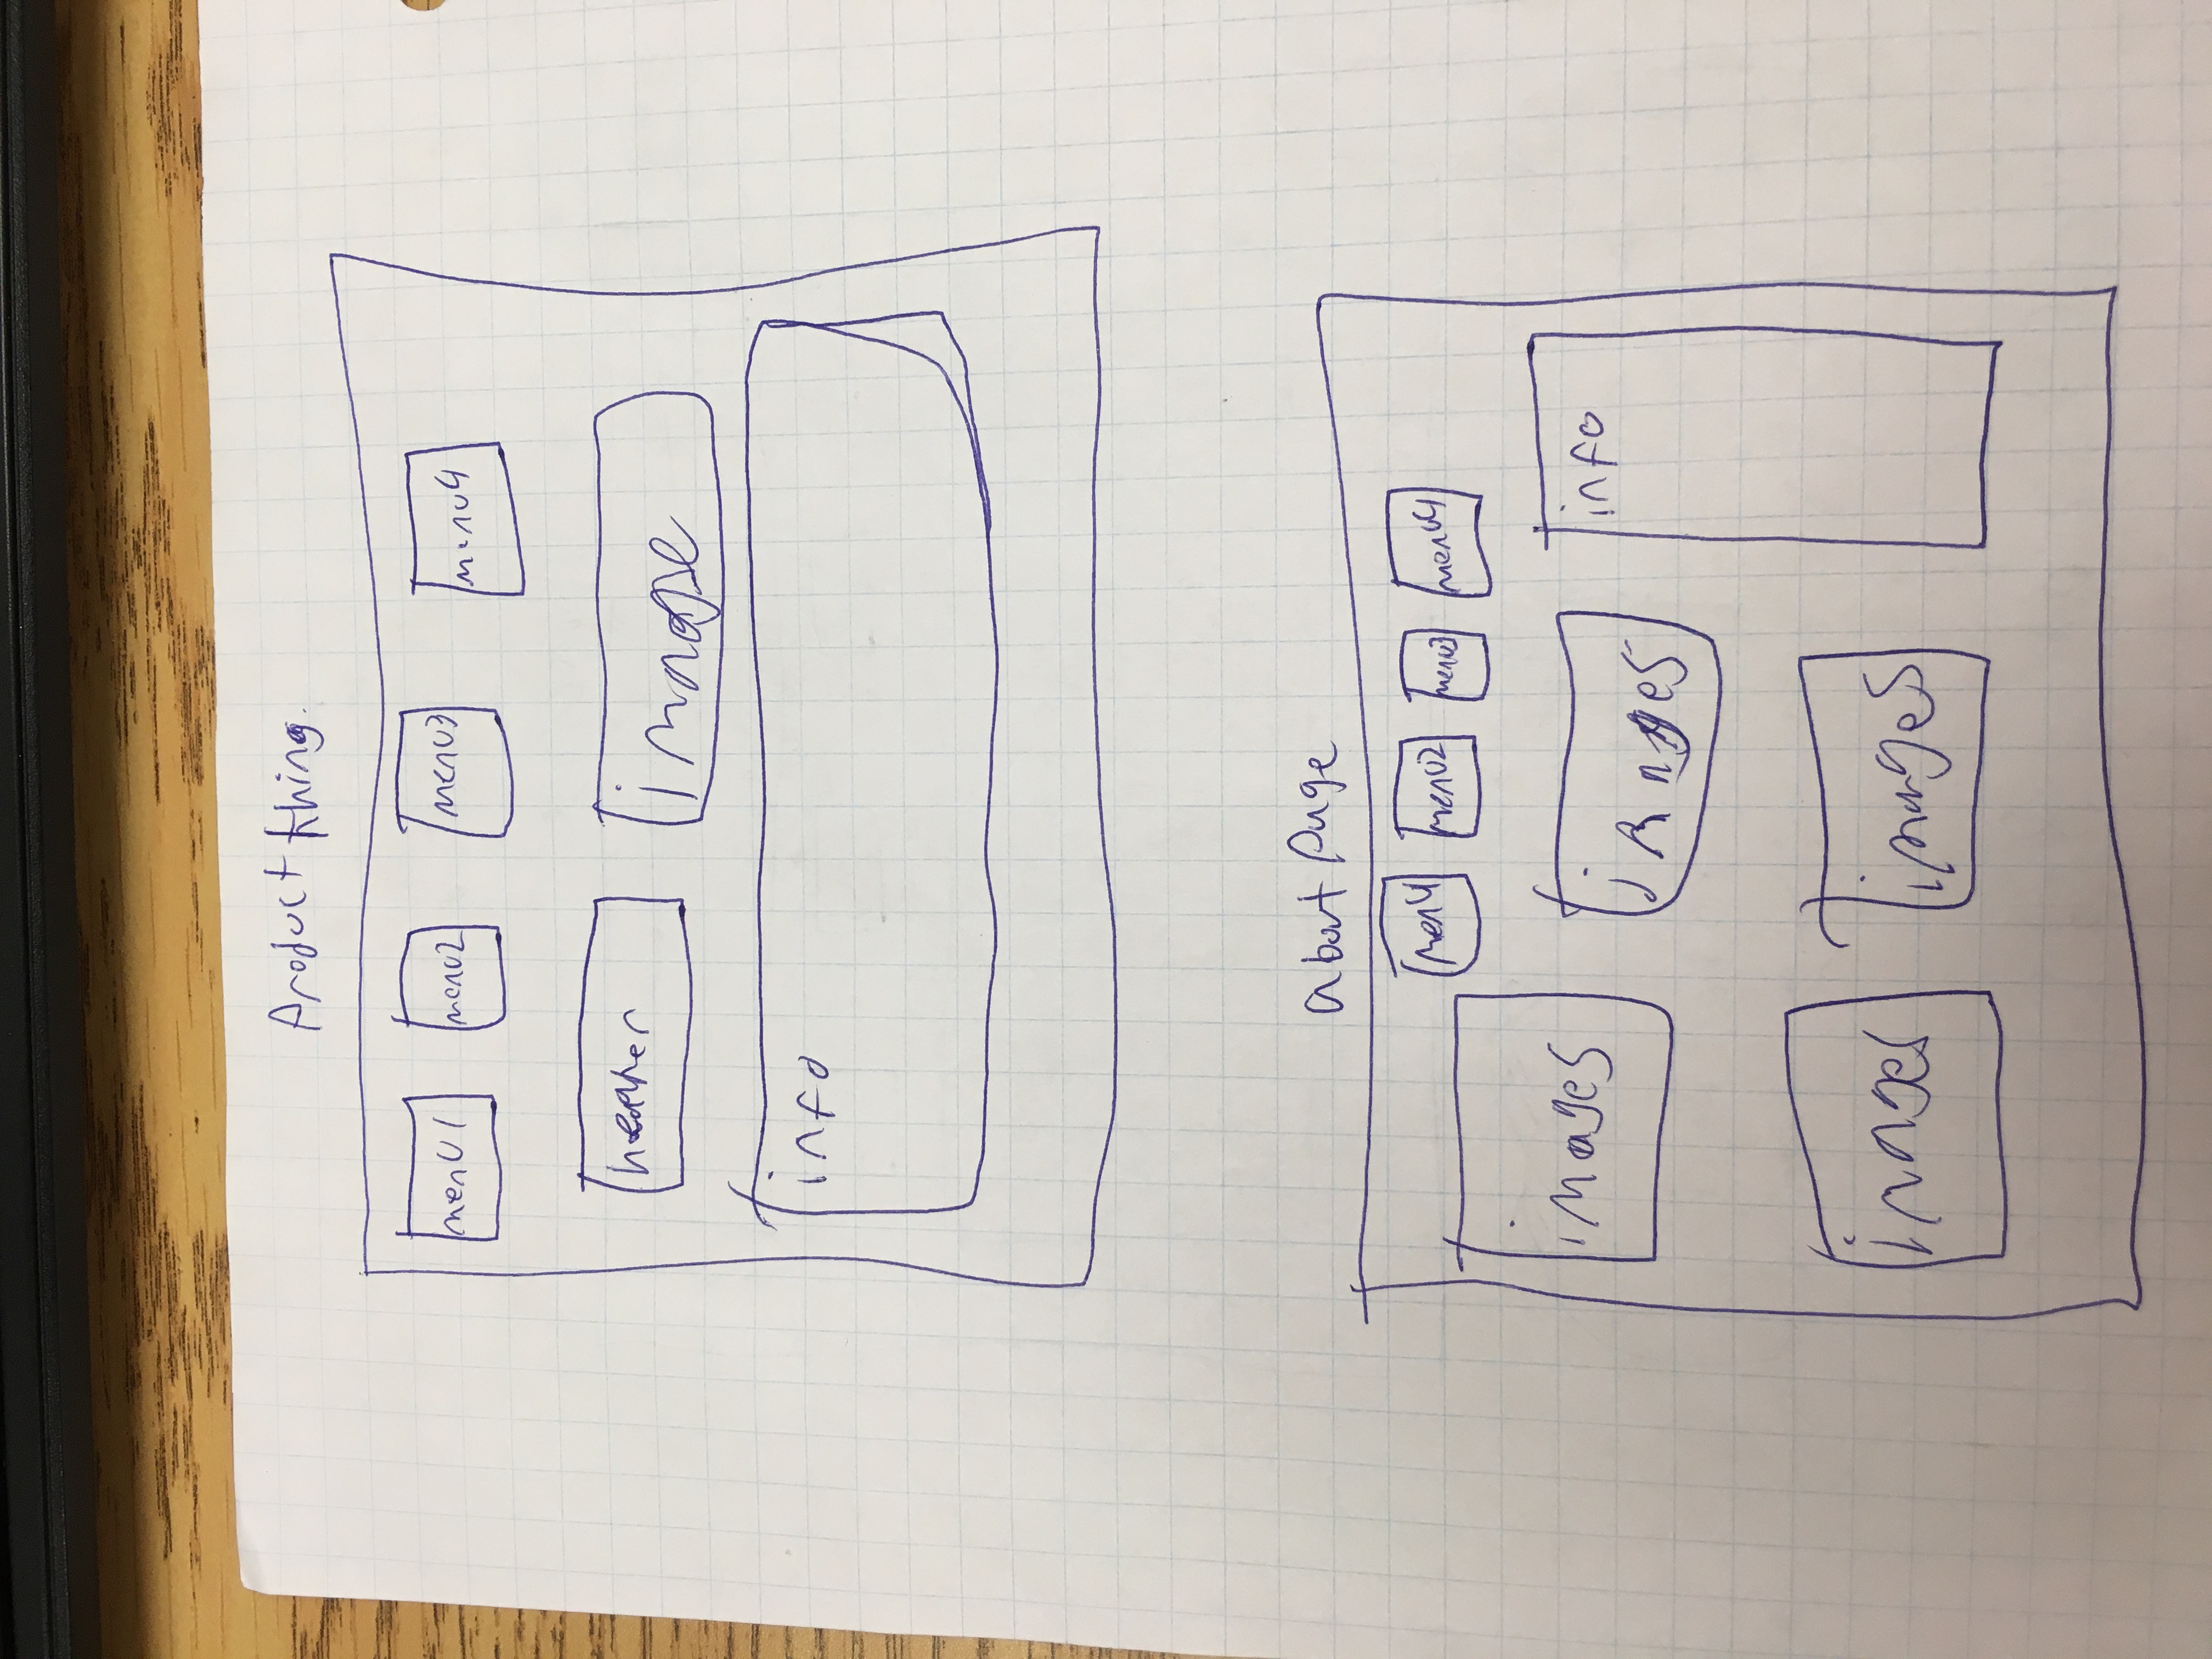 Product thing.
menu1 menu2 menu3 menu4
header image
info
about page
menu1 menu2 menu3 menu4
images
images info
images images